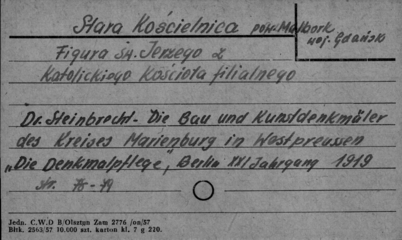 Stara Kościelnica pow. Malbork
woj. Gdańsk
Figura św. Jerzego z
Katolickiego Kościoła filialnego
Dr. Steinbrecht - Die Bau und Kunstdenkmäler
des Kreises Marienburg in Westpreussen
"Die Denkmalpflege", Berlin XXI Jahrgang 1919
str. 75-79
Jedn. C.W.D B/Olsztyn Zam 2776 /on/57
Bltk. 2563/57 10.000 szt. karton kl. 7 g 220.